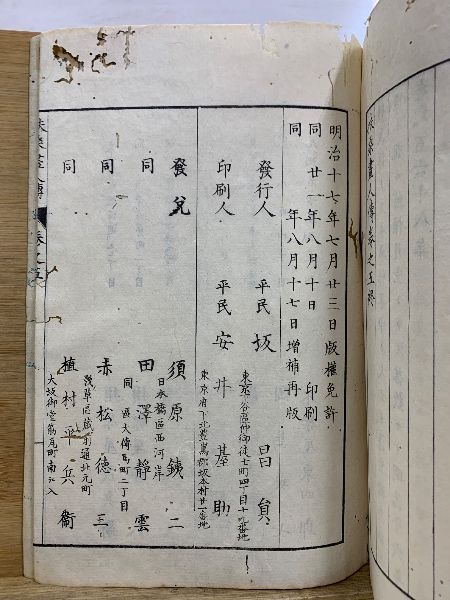 扶桑畫人傳卷之五終
明治十七年七月廿三日版權免許
同 廿一年八月十日 印刷
同 年八月十七日增補再版
發行人 平民 坂 昌員
東京
谷區仲御徒士町四丁目十九番地
印刷人 平民 安井基助
東京府下北豊島郡坂本村廿一番地
發兌 須原鉄二
日本橋區西河岸
同 田澤靜雲
同區大傳馬町二丁目
同 赤松徳三
淺草區蔵前通北元町
同 植村平兵衞
大坂御堂筋瓦町南江入
卷之五